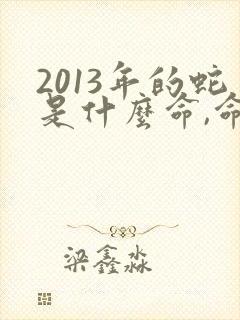 2013年的蛇
是什麼命,命
梁鑫淼